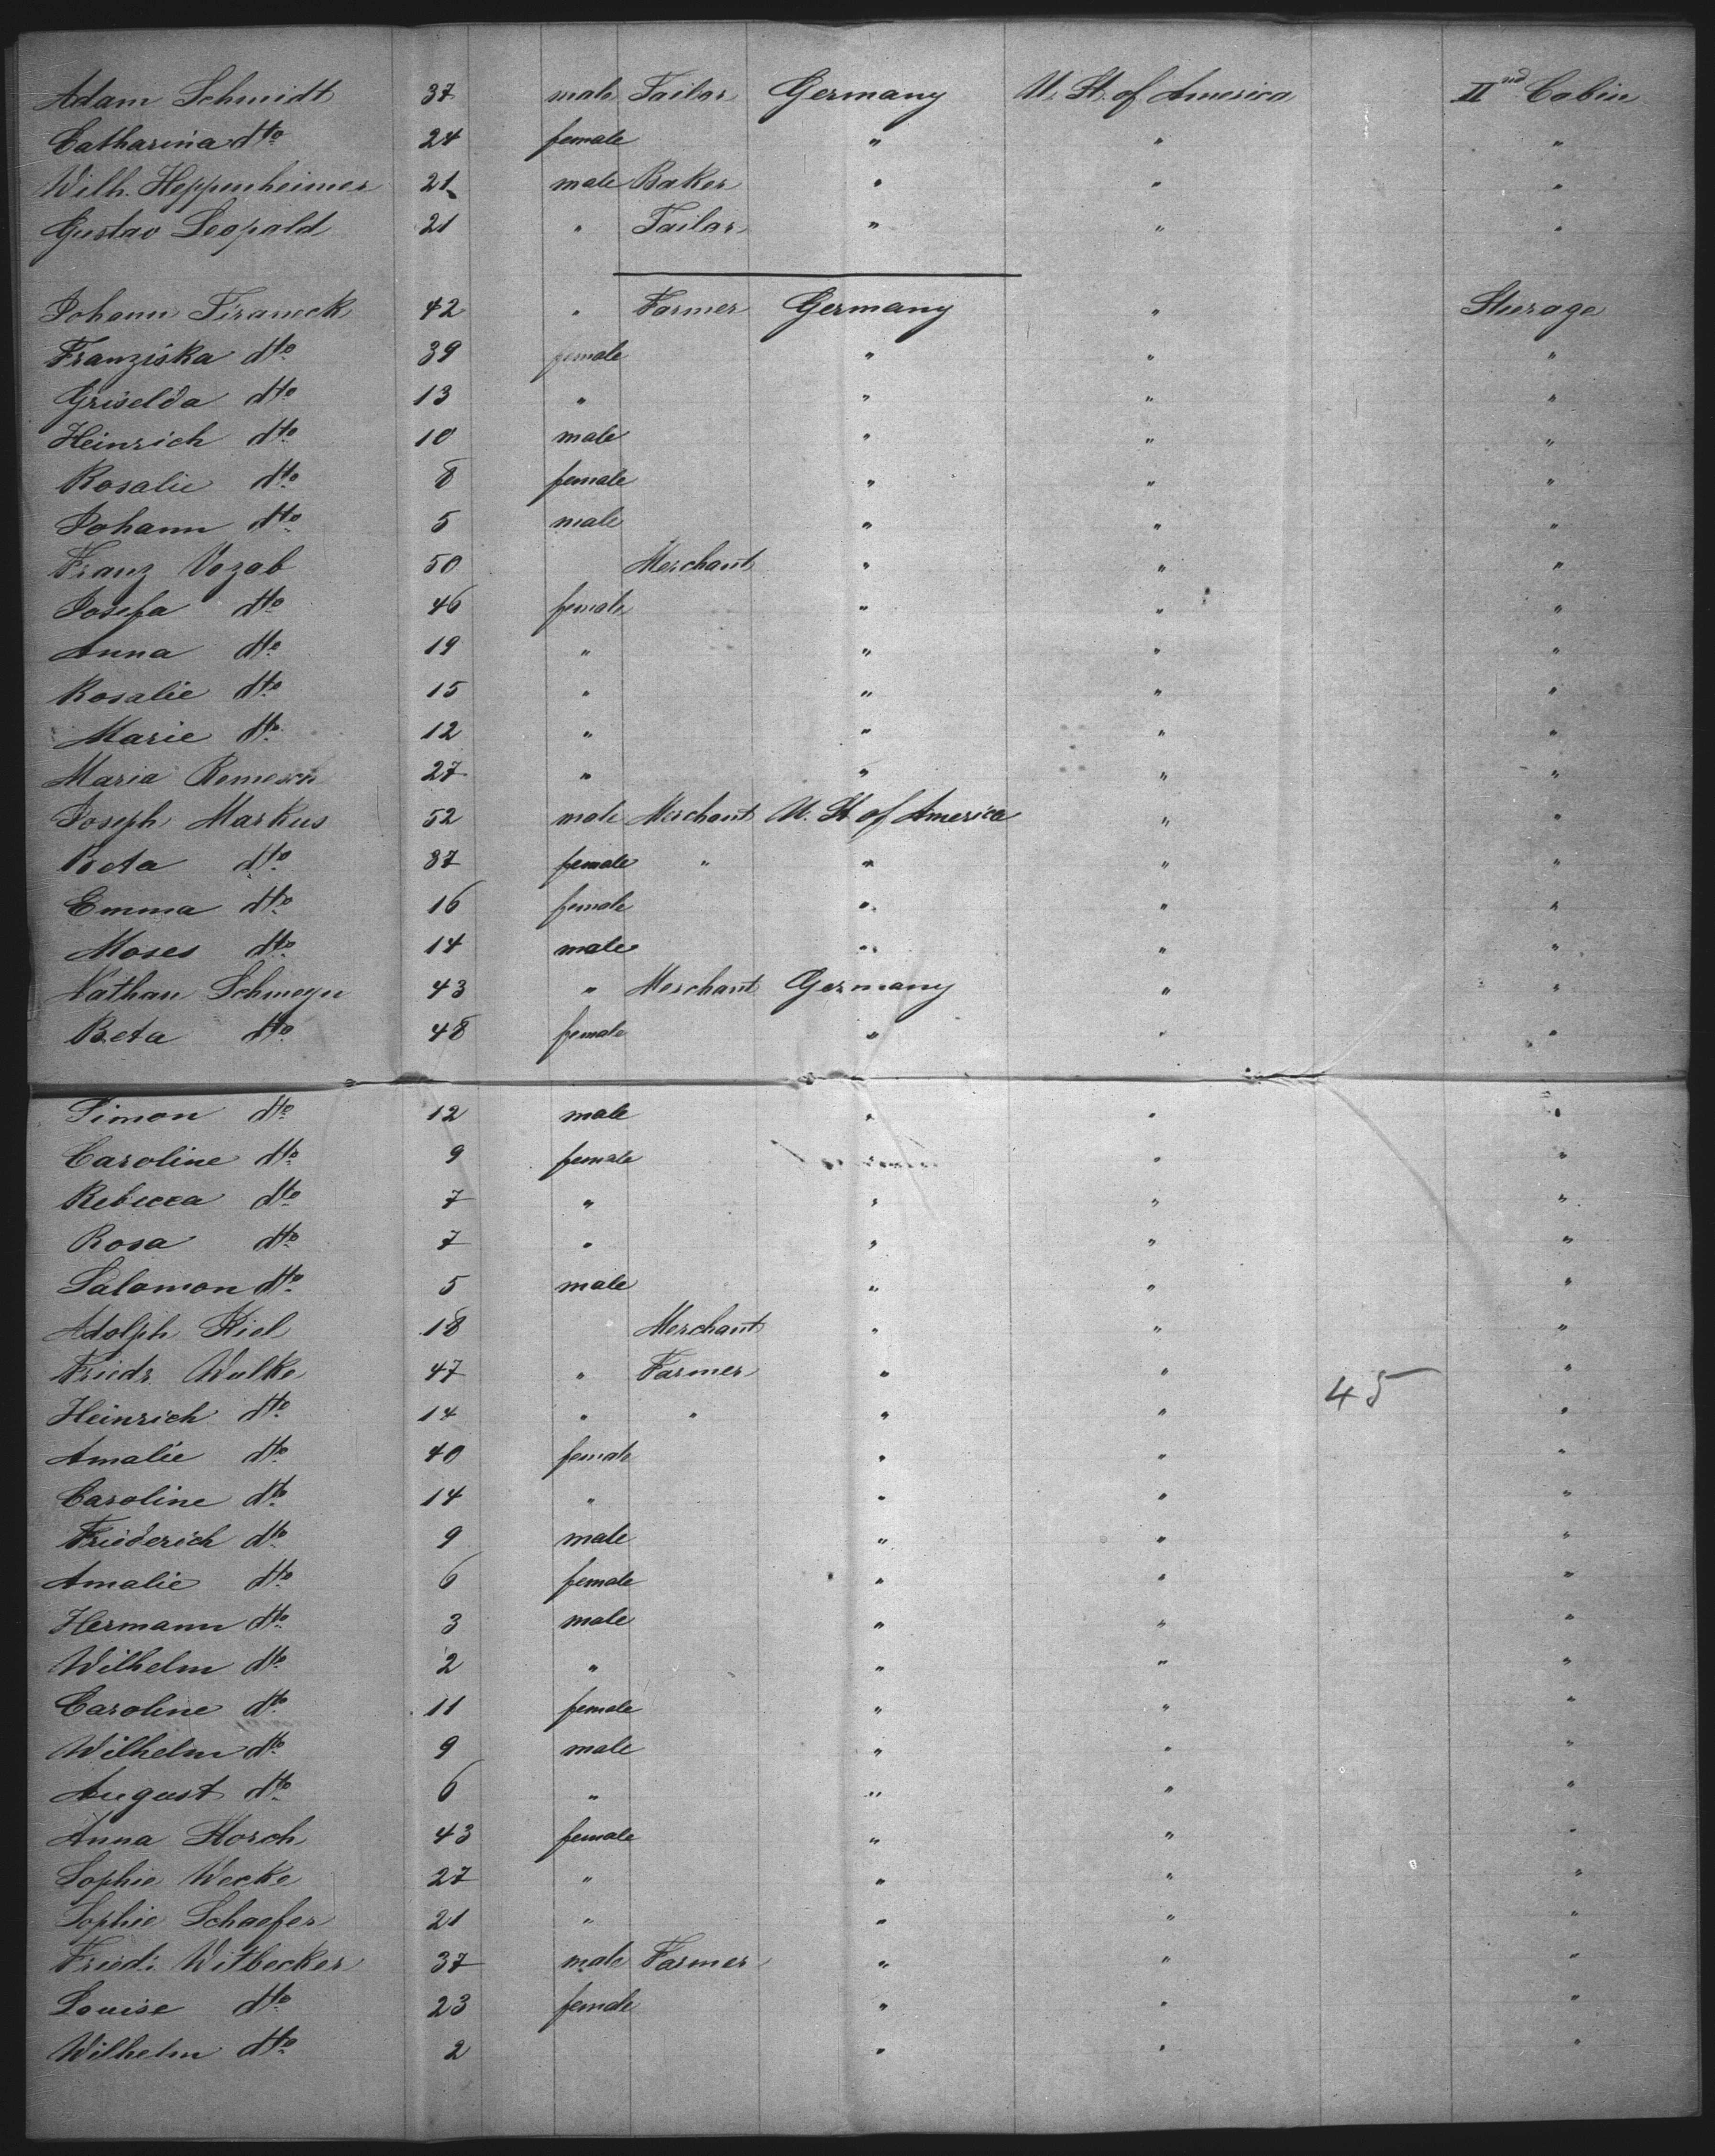 Adam Schmidt 37 male Tailor Germany U. St. of America IInd Cabin
Catharina dto 24 female " " "
Wilh. Heppenheimer 21 male Baker " " "
Gustav Leopold 21 " Tailor " " "
Johann 42 " Farmer Germany " Steerage
Franziska dto 39 female " " "
Griselda dto 13 " " " "
Heinrich dto 10 male " " "
Rosalie dto 8 female " " "
Johann dto 5 male " " "
Franz Vozab 50 Merchant " " "
Josefa dto 46 female " " "
Anna dto 19 " " " "
Rosalie dto 15 " " " "
Marie dto 12 " " " "
Maria 27 " " " "
Joseph Markus 52 male Merchant U. St of America " "
Beta dto 37 female " " " "
Emma dto 16 female " " "
Moses dto 14 male " " "
Nathan Schmeyn 43 " Merchant Germany " "
Beta dto 48 female " " "
Simon dto 12 male " " "
Caroline dto 9 female " "
Rebecca dto 7 " " " "
Rosa dto 7 " " " "
Salomon dto 5 male " " "
Adolph Kiel 18 Merchant " " "
Friedr. Wulke 47 " Farmer " " "
45
Heinrich dto 14 " " " " "
Amalie dto 40 female " " "
Caroline dto 14 " " " "
Friederich dto 9 male " " "
Amalie dto 6 female " " "
Hermann dto 3 male " " "
Wilhelm dto 2 " " " "
Caroline dto 11 female " " "
Wilhelm dto 9 male " " "
August dto 6 " " " "
Anna Horch 43 female " " "
Sophie Wecke 27 " " " "
Sophie Schaefer 21 " " " "
Friedr. Witbecker 37 male Farmer " " "
Louise dto 23 female " " "
Wilhelm dto 2 " " "